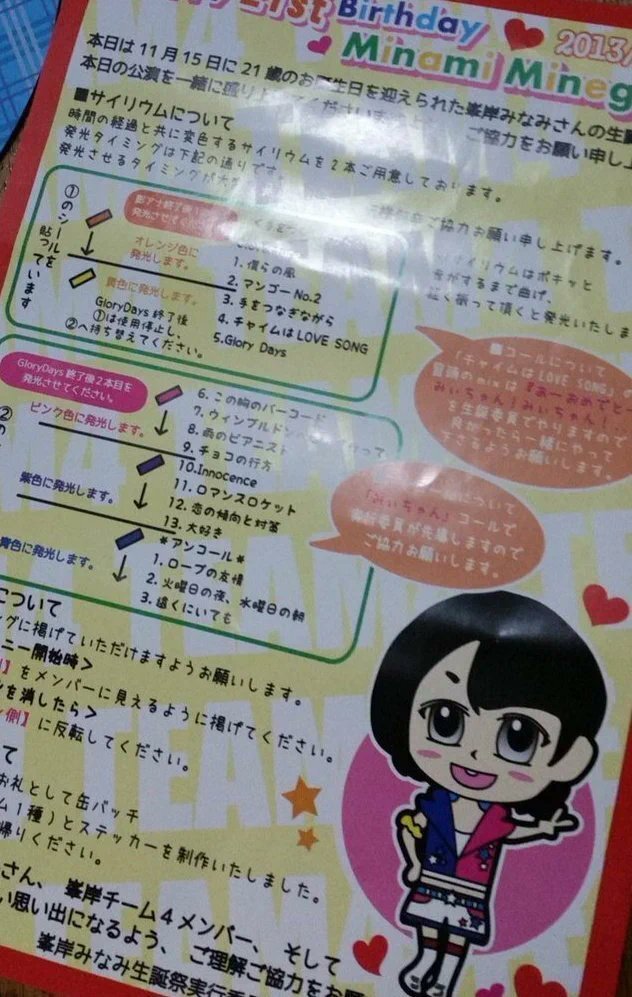 21st Birthday
2013/
Minami Mineg
本日は11月15日に21歳のお誕生日を迎えられた峯岸みなみさんの生誕
本日の公演を一緒に盛り上
ご協力をお願い申し上
■サイリウムについて
時間の経過と共に変色するサイリウムを2本ご用意しております。
発光タイミングは下記の通りです
発光させるタイミングが
ご協力お願い申し上げます。
①のシールを貼っています
影アナ終了後
発光させ
オレンジ色に
発光します。
黄色に発光します。
GloryDays 終了後
①は使用停止し、
②へ持ち替えてください。
1. 僕らの風
2. マンゴーNo.2
3. 手をつなぎながら
4. チャイムはLOVE SONG
5.Glory Days
サイリウムはポキッと
音がするまで曲げ、
振って頂くと発光いたしま
■コールについて
「チャイムはLOVE SONG」の
冒頭のmixは『あーおめでとー
みぃちゃん！みぃちゃん！
を生誕委員でやりますので
良かったら一緒にやって
下さるようお願いします。
GloryDays 終了後2本目を
発光させてください。
②の
ピンク色に発光します。
紫色に発光します。
青色に発光します。
6. この胸のバーコード
7. ウィンブルドンへ
8. 雨のピアニスト
9. チョコの行方
10.Innocence
11. ロマンスロケット
12. 恋の傾向と対策
13. 大好き
＊アンコール＊
1. ロープの友情
2. 火曜日の夜、水曜日の朝
3. 遠くにいても
について
「みぃちゃん」コールで
実行委員が先導しますので
ご協力お願いします。
について
グに掲げていただけますようお願いします。
ニー開始時＞
】をメンバーに見えるように掲げてください。
ンを消したら＞
側】に反転してください。
て
お礼として缶バッチ
ム1種）とステッカーを制作いたしました。
帰りください。
さん、 峯岸チーム4メンバー、 そして
い思い出になるよう、ご理解ご協力をお願
峯岸みなみ生誕祭実行委